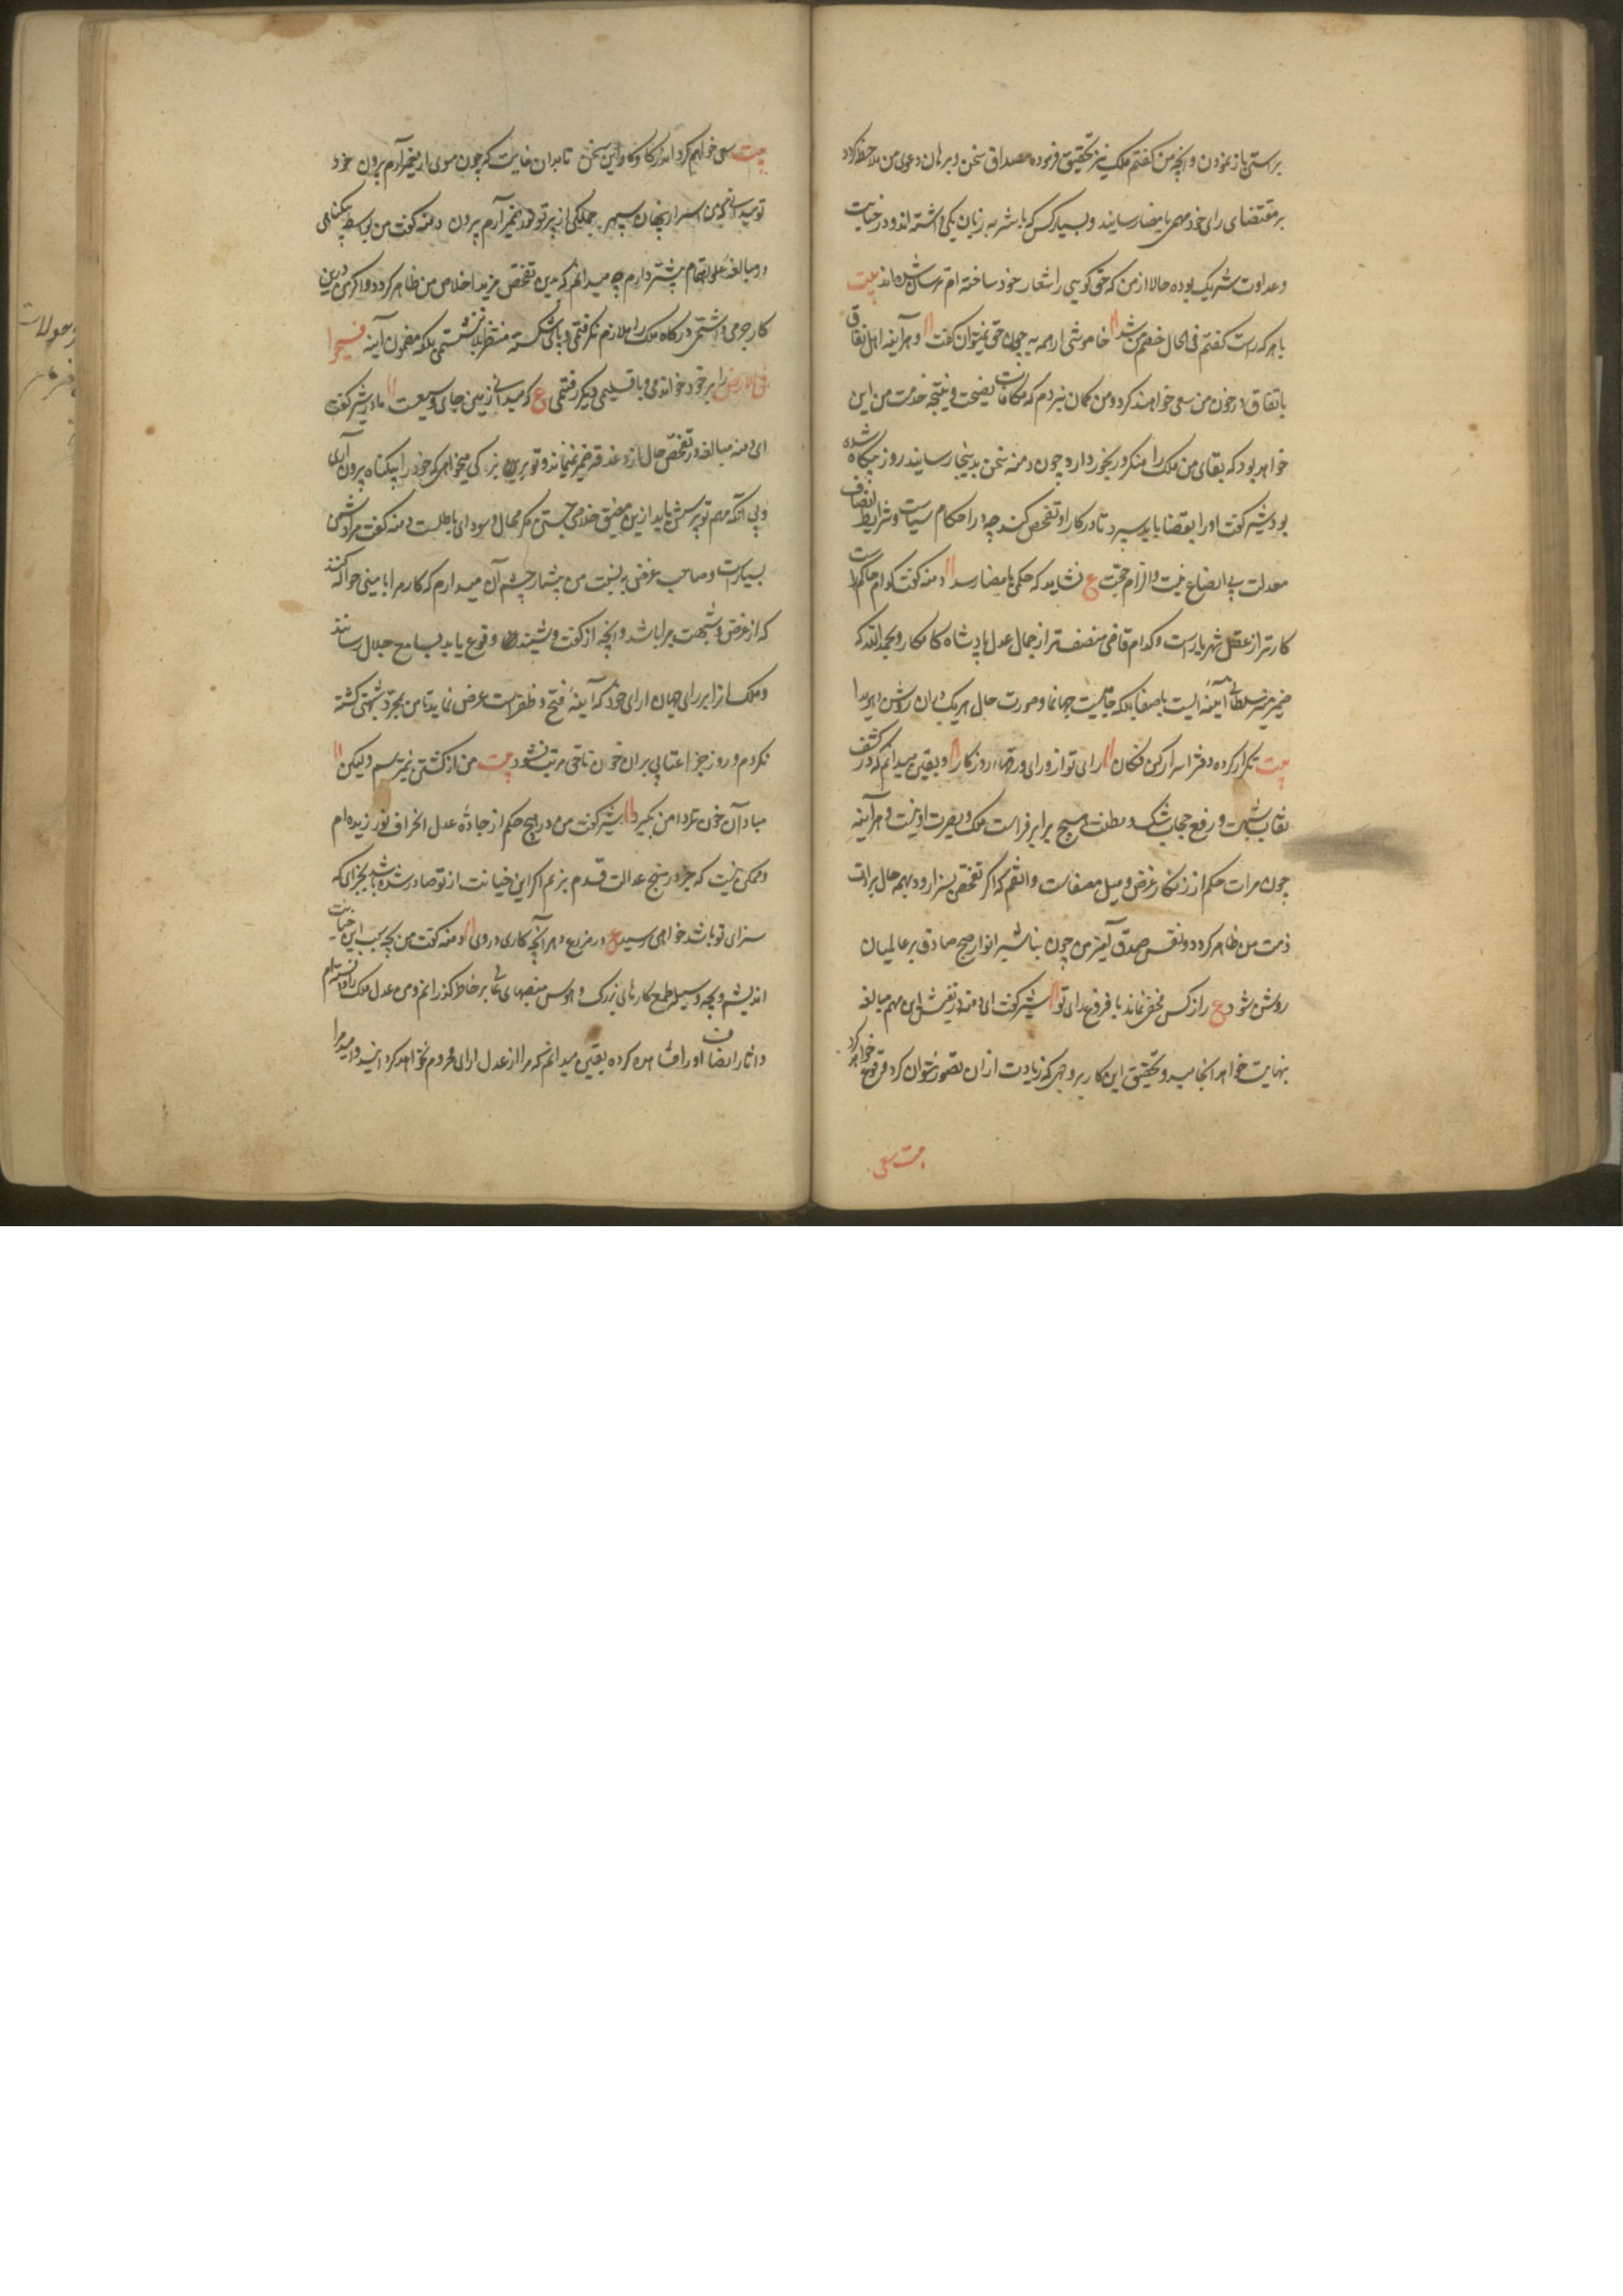 براستی باز نمودن و آنچه من گفتم ملک نیز تحقیق فرموده مصداق سخن و برهان دعوی من ملاحظه کرد
بر مقتضای رای خود مهمی بامضا رسانید و بسیار کس که با شتر به زبان یکی داشته اند و در خیانت
و عداوت شریک بوده حالا از من که حق گویی را شعار خود ساخته ام ترسان شده اند بیت
با هر که راست گفتم فی الحال خصم من شد خاموشی ار همه به چون حق نمیتوان گفت و هرآینه اهل نفاق
باتفاق در خون من سعی خواهند کرد و من گمان نبردم که مکافات نصیحت و نتیجه خدمت من این
خواهد بود که بقای من ملک را متفکر و رنجور دارد چون دمنه سخن بدینجا رسانید روز بیگاه شده
بود شیر گفت او را بقضا باید سپرد تا در کار او تفحص کنند چه در احکام سیاست و شرایط انصاف
معدلت بی ایضاح بینت و الزام حجت ع نشاید که حکمی بامضا رسد دمنه گفت کدام حاکم راست
کارتر از عقل شهریارست و کدام قاضی منصف تر از جمال عدل پادشاه کامکار و بحمد الله که
ضمیر منیر سلطانی آینه ایست باصفا بلکه جامیست جهانما و صورت حال هر یک در آن روشن و هویدا
بیت تکرار کرده دفتر اسرار کن فکان رای تو از ورای ورقهاء روزگار و یقین میدانم که در کشف
نقاب شبهت و رفع حجاب شک و مظنت هیچ برابر فراست ملک و بصیرت او نیست و هرآینه
چون مرات حکم از زنگار غرض و میل مصفاست واثقم که اگر تفحص بسزا رود همه حال برائت
ذمت من ظاهر گردد و نفس صدق آمیز من چون تباشیر انوار صبح صادق بر عالمیان
روشن شود ع راز کس مخفی نماند با فروغ رای تو شیر گفت ای دمنه در تفتیش این مهم مبالغه
بنهایت خواهد انجامید و تحقیق این کار بر وجهی که زیادت از آن تصور نتوان کرد وقوع خواهد کرد
بیت سعی
بیت سعی خواهم کرد اندر کاوکاو این سخن تا بدان غایت که چون موی از خمیر آرم برون خود
تو میدانی که من اسرار پنهان سپهر جملگی از پرتو نور ضمیر آرم برون دمنه گفت من بواسطه بیگناهی
در مبالغه علو اهتمام بیشتر دارم چه میدانم که بدین تفحص مزید اخلاص من ظاهر گردد و اگر من درین
کار جرمی داشتمی درگاه ملک را ملازم نگرفتمی و پای شکسته منتظر بلا ننشستمی بلکه مضمون آیه فسیروا
فی الارض را بر خود خواندمی و باقلیمی دیگر رفتمی ع که میدانی زمین جای وسیعست مادر شیر گفت
ای دمنه مبالغه در تفحص حال از دغدغه ضمیر نمیماند و تو برین می خواهی که خود را بیگناه برون آری
و بی آنکه مهم تو پرسش یابد ازین مضیق خلاص جستن فکر محال و سودای باطلست دمنه گفت مرا دشمن
بسیارست و صاحب غرض به نسبت من بیشمار چشم آن میدارم که کار مرا بامینی حواله کنند
که از غرض و شبهت مبرا باشد و آنچه از گفت و شنید وقوع یابد بمسامع جلال رسانند
و ملک آنرا بر رای جهان آرای خود که آینه فتح و ظفرست عرض نماید تا من بمجرد شبهتی کشته
نگردم و روز جزا عتابی بران خون ناحق مرتب نشود بیت من از کشتن نمیترسم ولیکن
مبادا آن خون ترا دامن بگیرد شیر گفت من در هیچ حکم از جاده عدل انحراف نورزیده ام
و ممکن نیست که جز در منهج عدالت قدم بزنم اگر این خیانت از تو صادر شده باشد بجزائی که
سزای تو باشد خواهی رسید ع در مزرع دهر آنچه کاری دروی دمنه گفت من بچه سبب این خیانت
اندیشم و بچه وسیله طمع کارهای بزرگ و هوس منصبهای عالی بر خاطر گذرانم و من عدل ملک را دانسته ام
و آثار انصاف او را مشاهده کرده یقین میدانم که مرا از عدل آرای محروم نخواهد کردانید و امید مرا